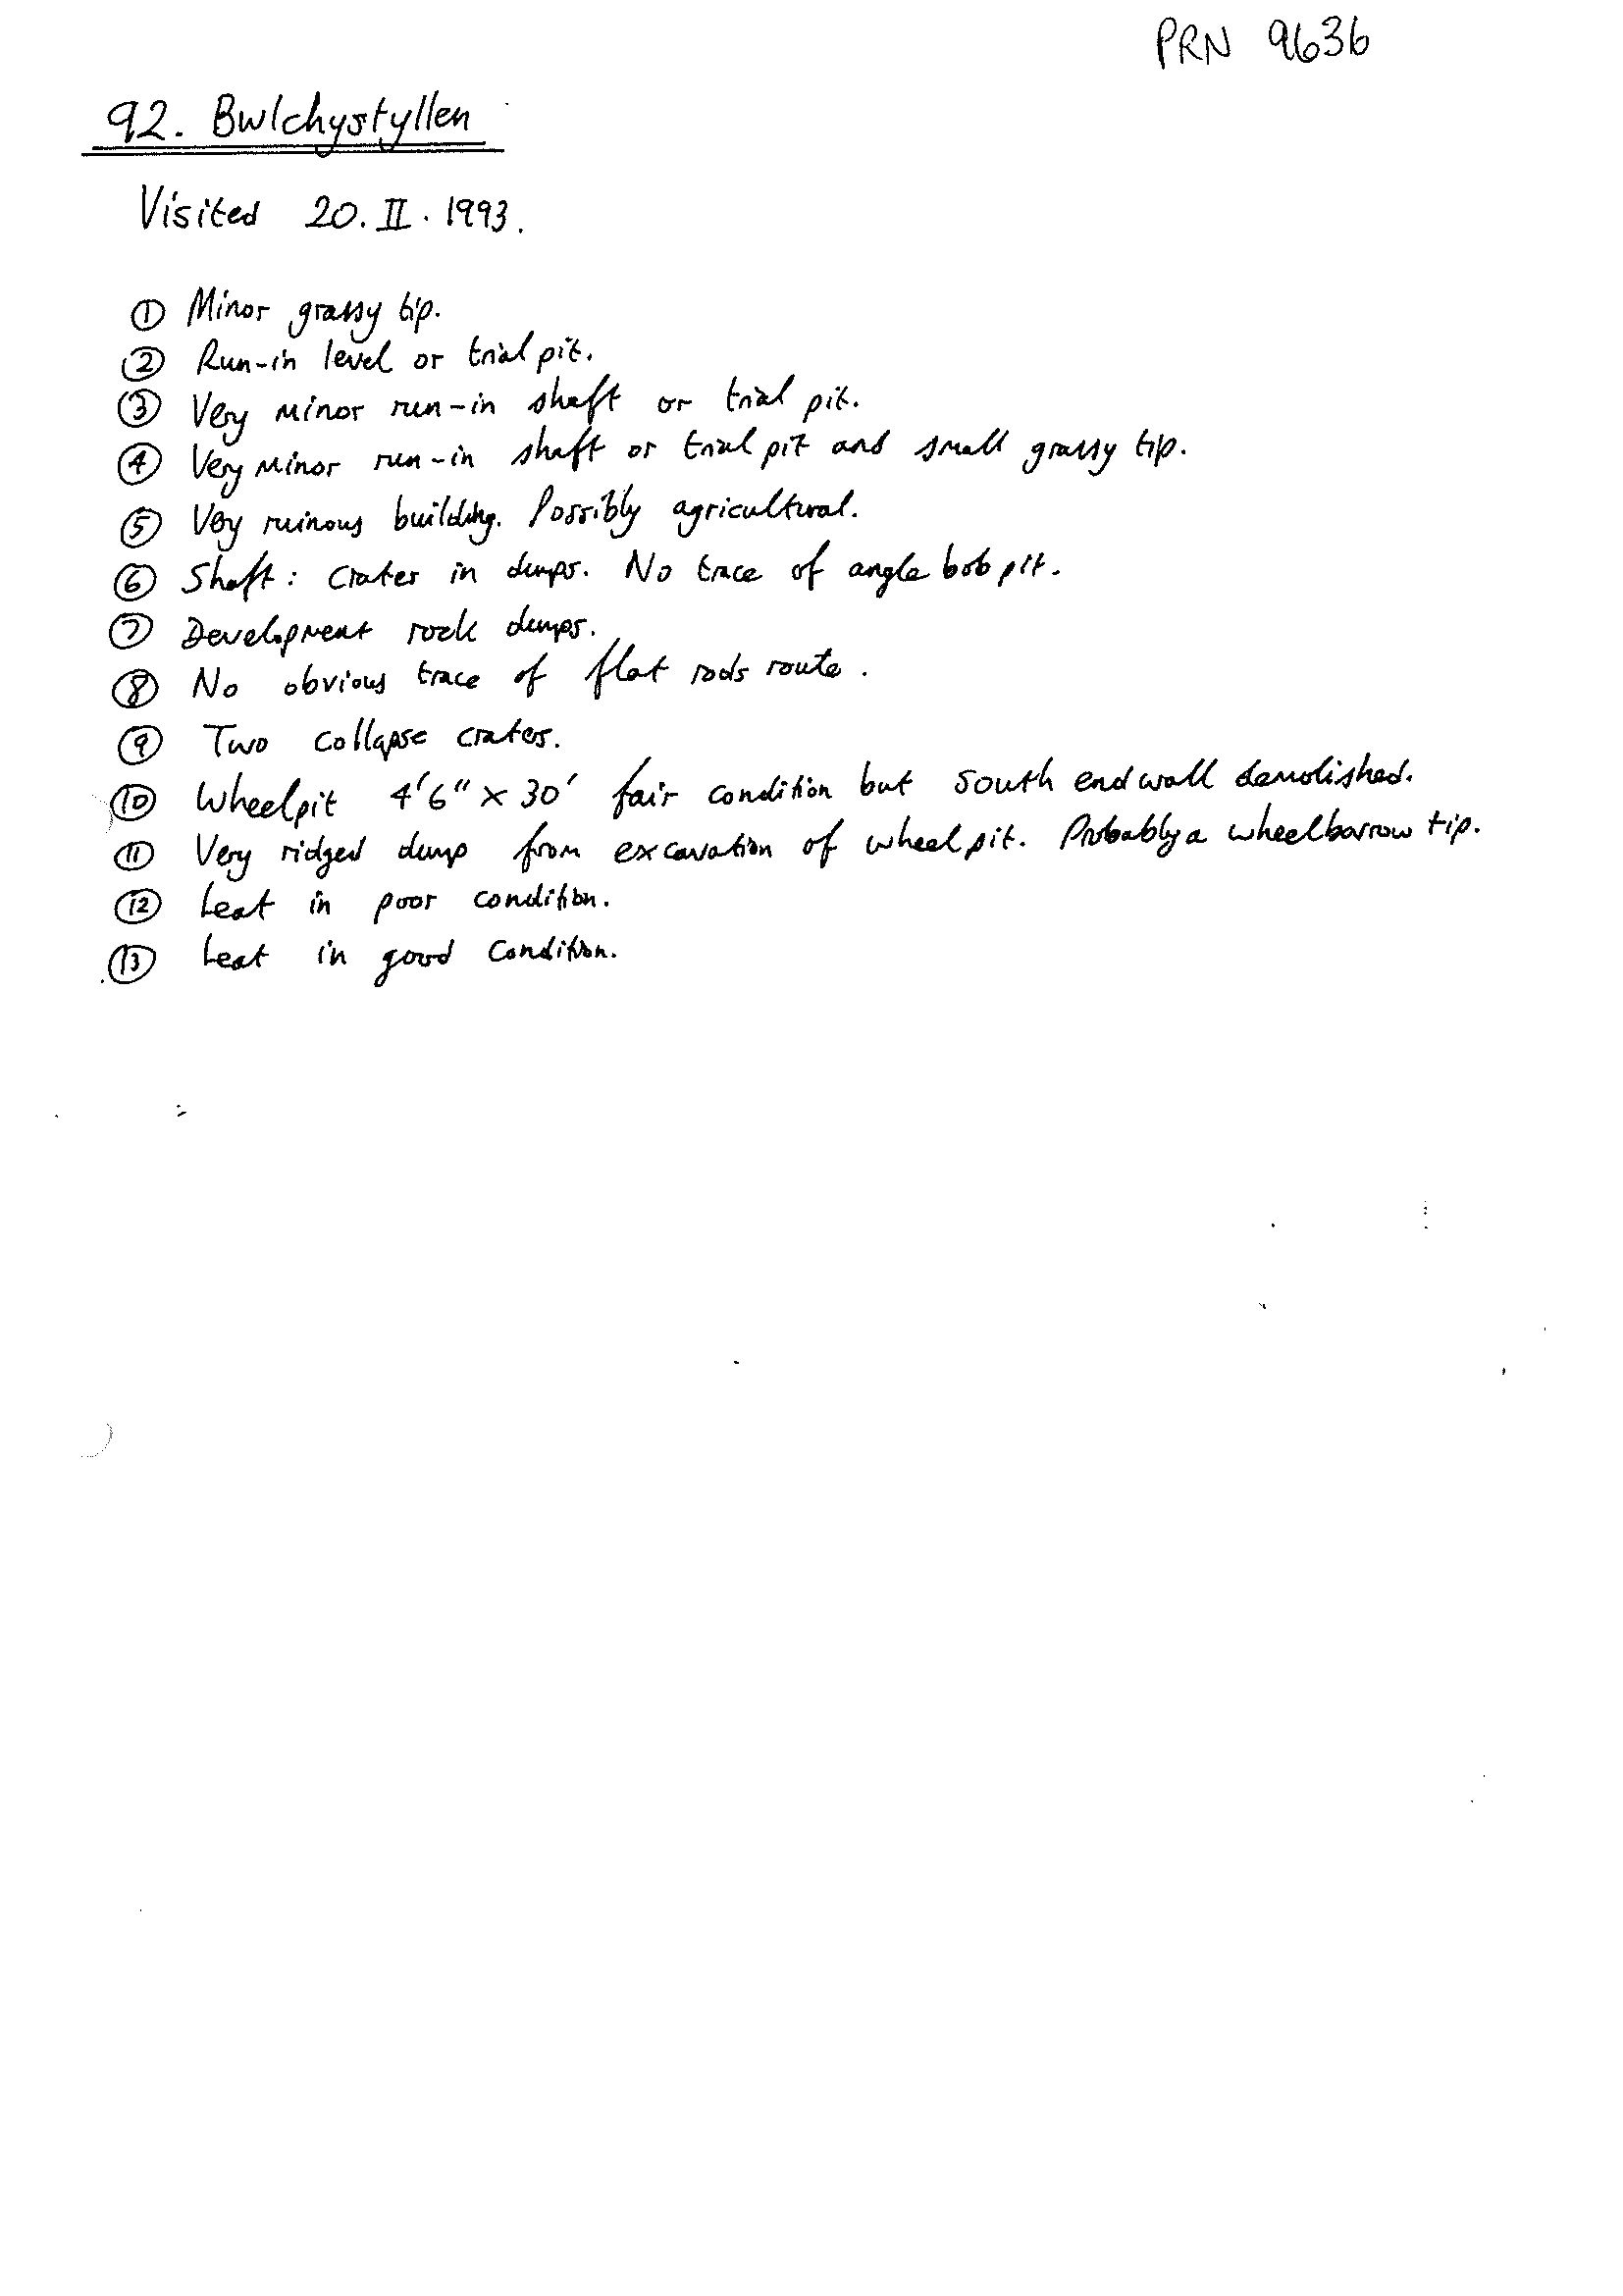 PRN 9636
92. Bwlchystyllen
Visited 20.II.1993.
① Minor grassy tip.
② Run-in level or trial pit.
③ Very minor run-in shaft or trial pit.
④ Very minor run-in shaft or trial pit and small grassy tip.
⑤ Very ruinous building. Possibly agricultural.
⑥ Shaft: Crater in dumps. No trace of angle bob pit.
⑦ Development rock dumps.
⑧ No obvious trace of flat rods route.
⑨ Two collapse craters.
⑩ Wheelpit 4'6" × 30' fair condition but south end wall demolished.
⑪ Very ridged dump from excavation of wheelpit. Probably a wheelbarrow tip.
⑫ Leat in poor condition.
⑬ Leat in good condition.